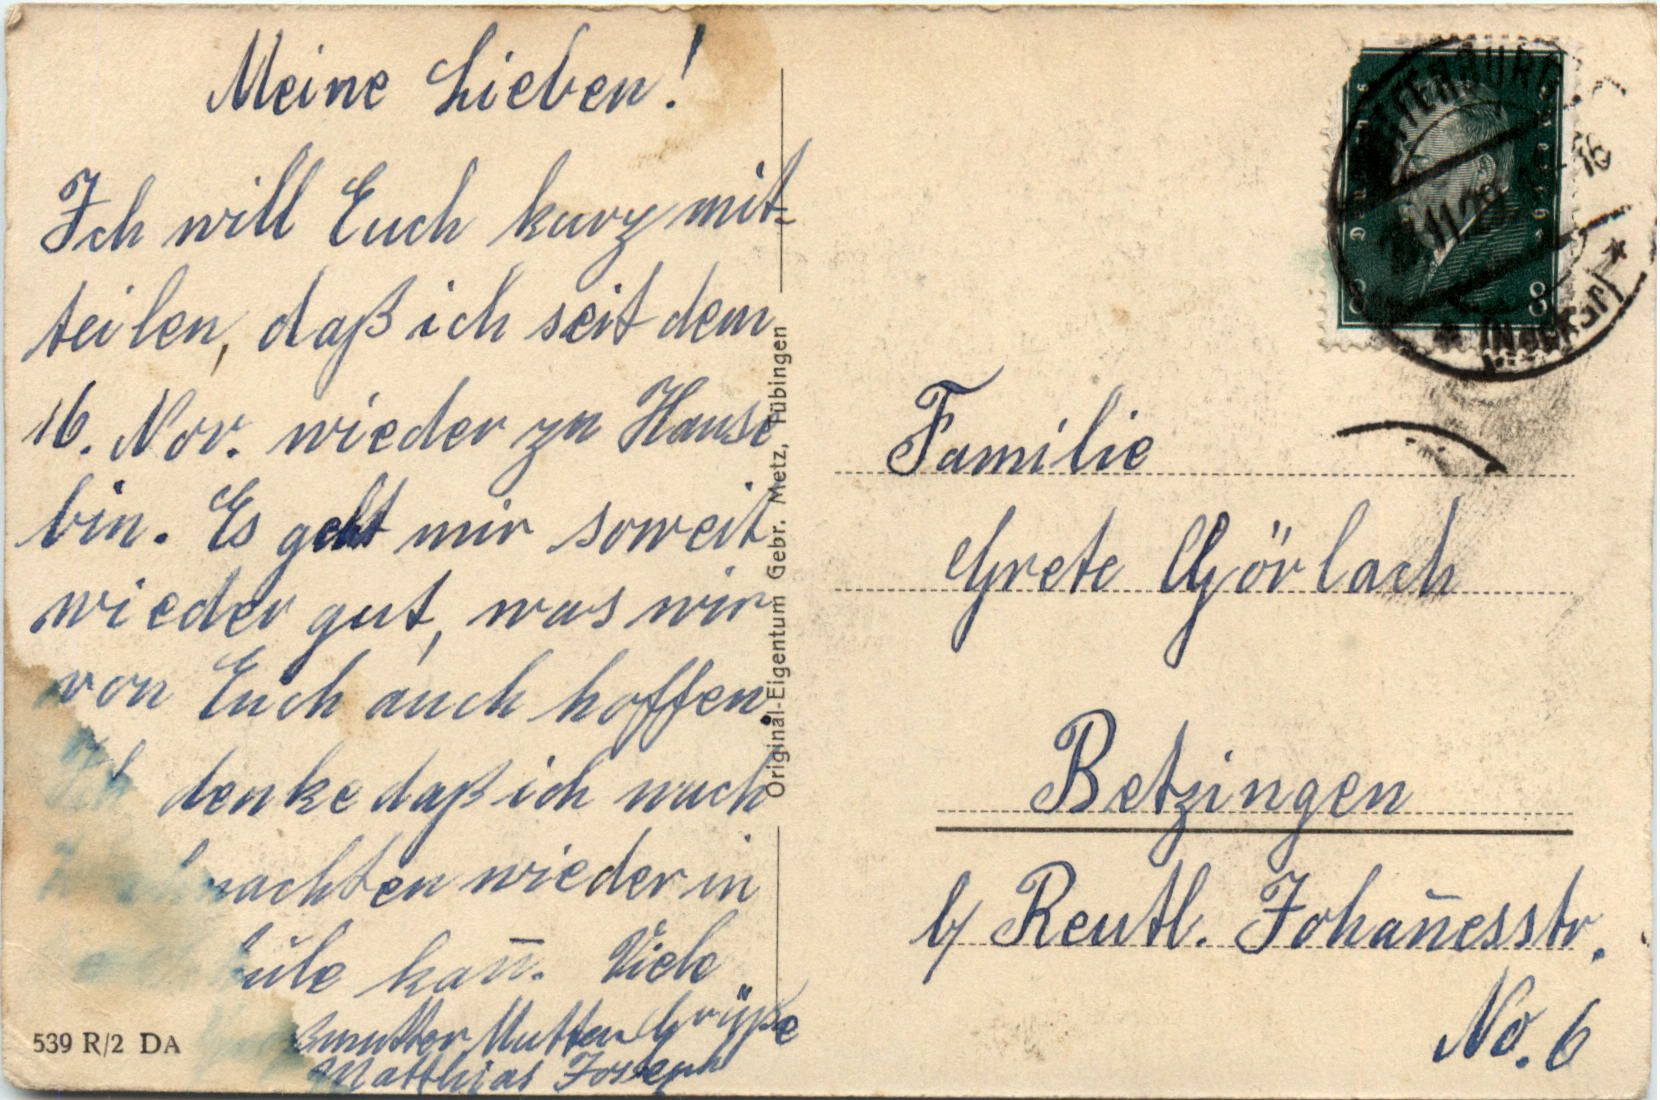 Meine Lieben!
Ich will Euch kurz mit-
teilen, daß ich seit dem
16. Nov. wieder zu Hause
bin. Es geht mir soweit
wieder gut, was wir
von Euch auch hoffen.
Ich denke daß ich nach
nachten wieder in
kan̄. Viele
Grüße
Mutter
Matthias Joseph
539 R/2 DA
Original-Eigentum Gebr. Metz, Tübingen
Deutsches
8 8
11.29
16
(Neckar)
Familie
Grete Görlach
Betzingen
b/ Reutl. Johan̄esstr.
No. 6